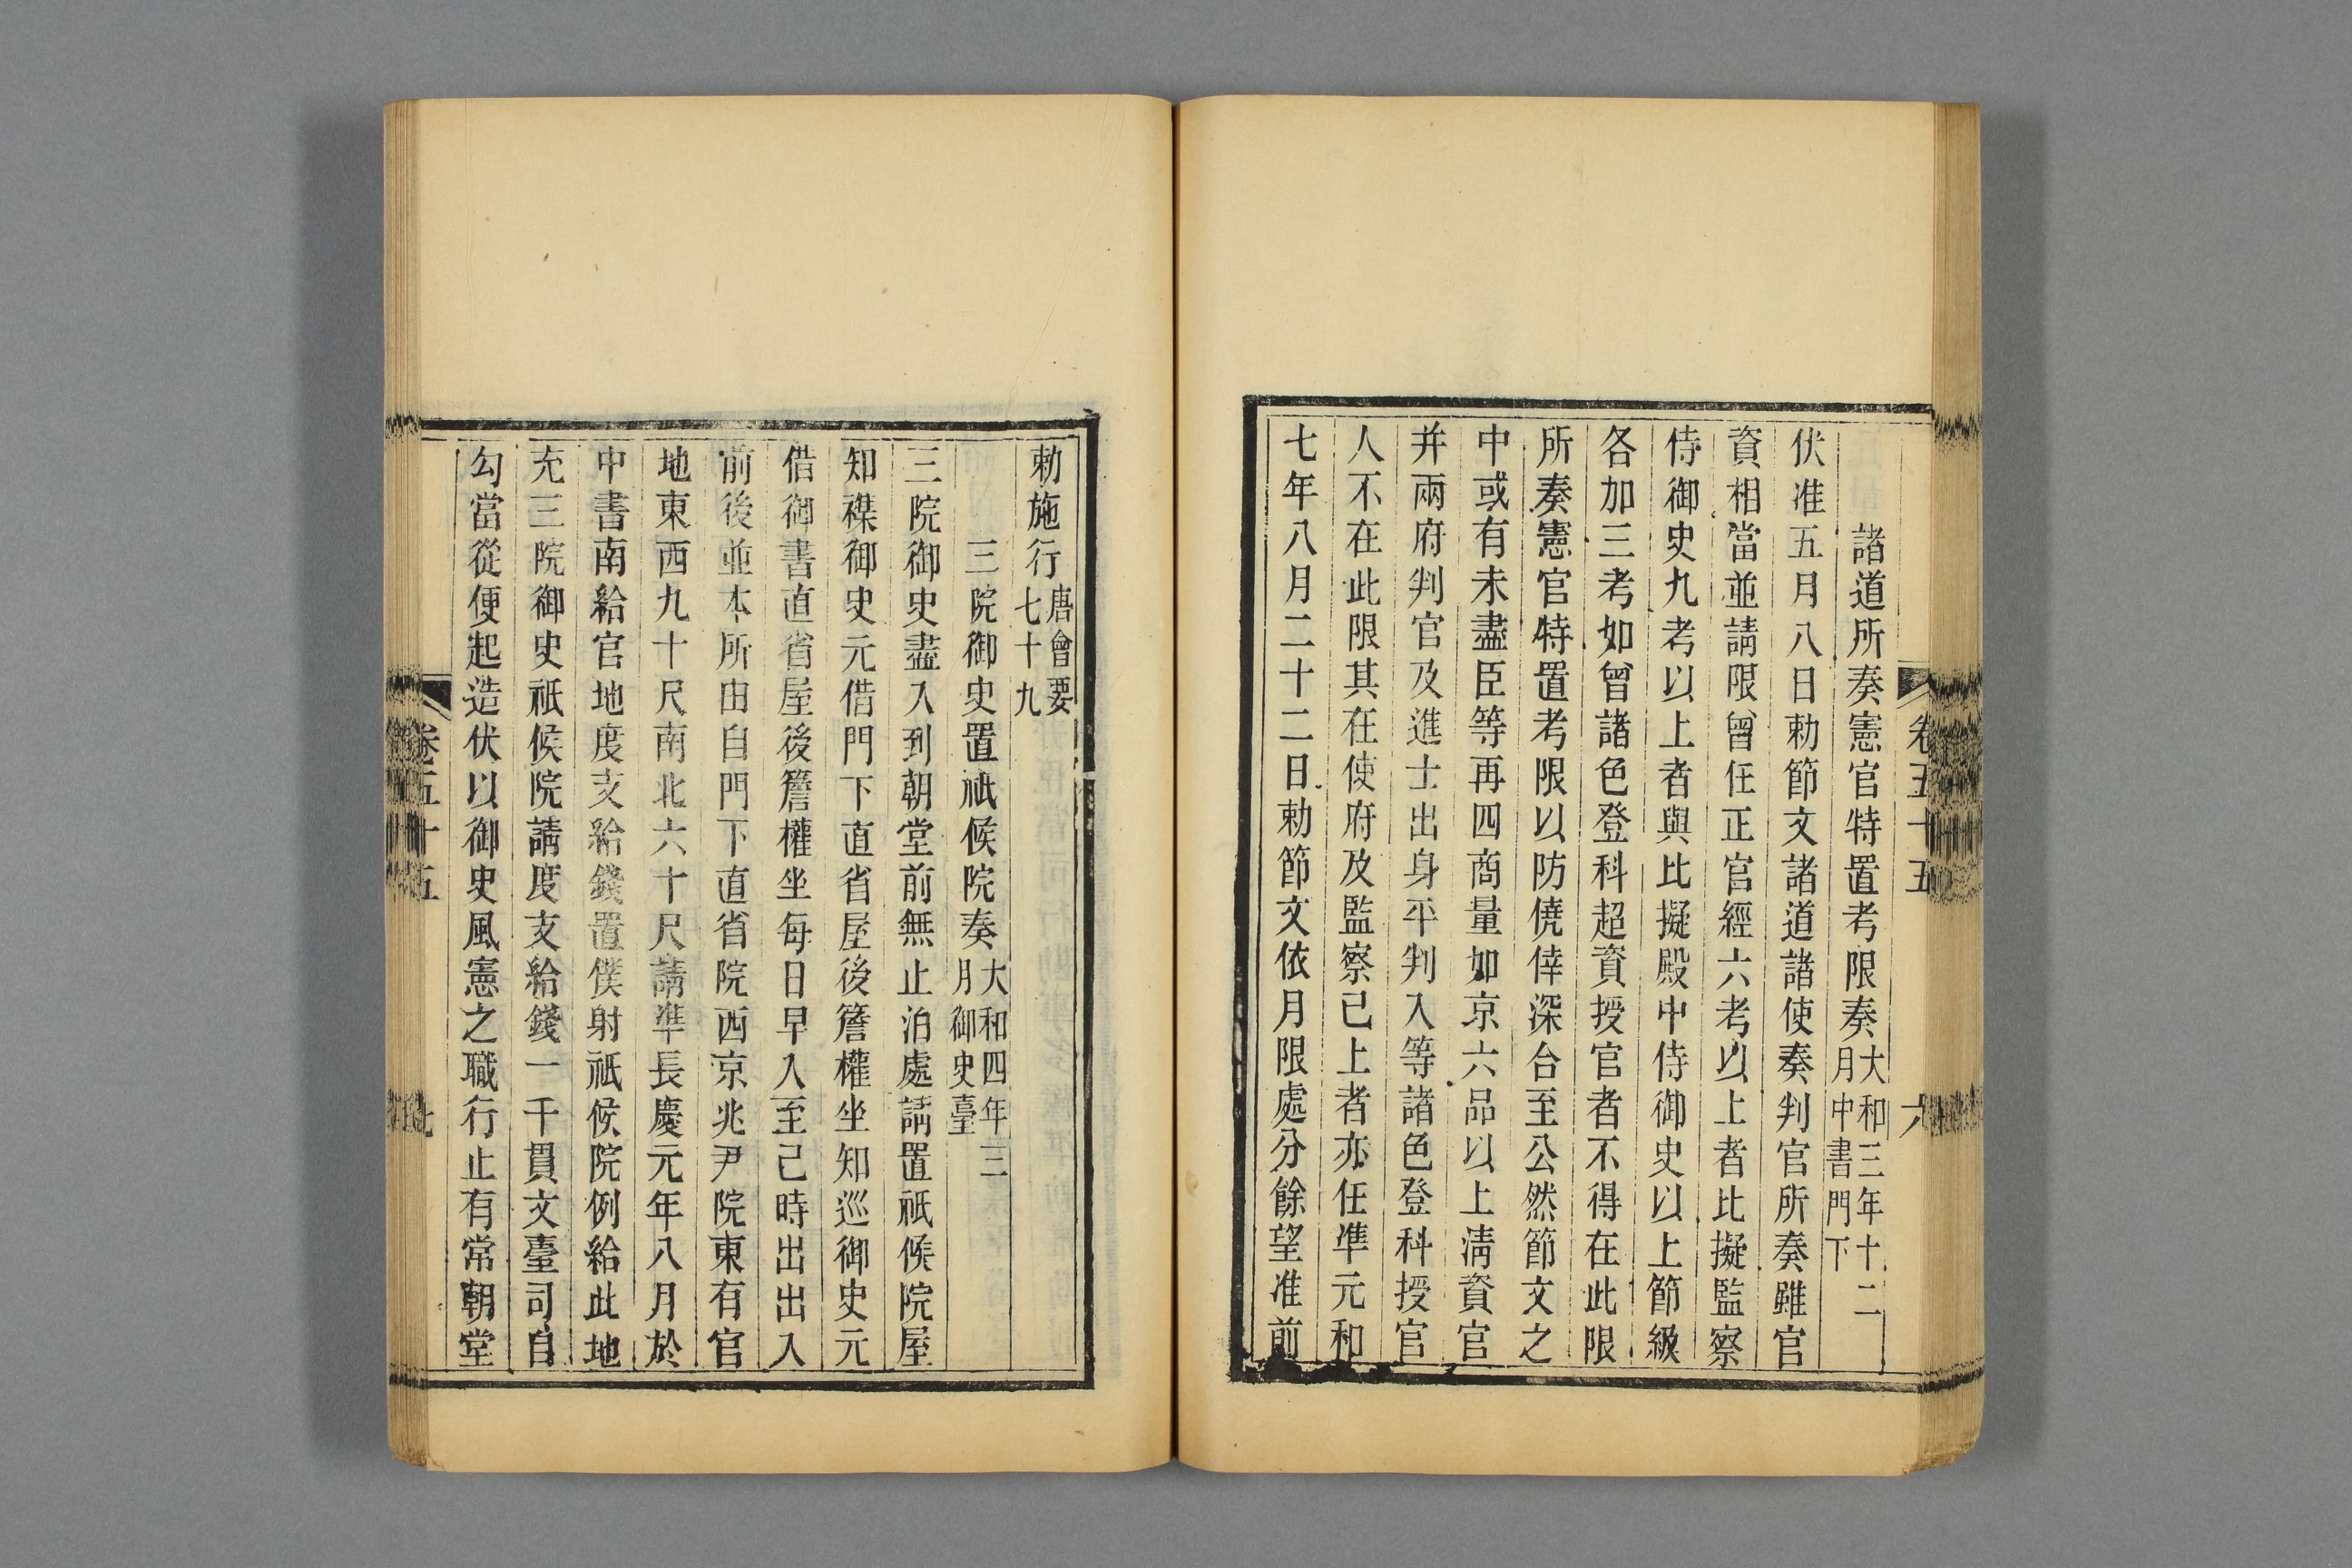 卷五十五
六
諸道所奏憲官特置考限奏大和三年十二月中書門下
伏准五月八日勅節文諸道諸使奏判官所奏雖官
資相當並請限曾任正官經六考以上者比擬監察
侍御史九考以上者與比擬殿中侍御史以上節級
各加三考如曾諸色登科超資授官者不得在此限
所奏憲官特置考限以防僥倖深合至公然節文之
中或有未盡臣等再四商量如京六品以上清資官
并兩府判官及進士出身平判入等諸色登科授官
人不在此限其在使府及監察已上者亦任準元和
七年八月二十二日勅節文依月限處分餘望准前
勅施行唐會要七十九
三院御史置祇候院奏大和四年三月御史臺
三院御史盡入到朝堂前無止泊處請置祇候院屋
知襍御史元借門下直省屋後簷權坐知巡御史元
借御書直省屋後簷權坐每日早入至己時出出入
前後並本所由自門下直省院西京兆尹院東有官
地東西九十尺南北六十尺請準長慶元年八月於
中書南給官地度支給錢置僕射祇候院例給此地
充三院御史祇候院請度支給錢一千貫文臺司自
勾當從便起造伏以御史風憲之職行止有常朝堂
卷五十五
七